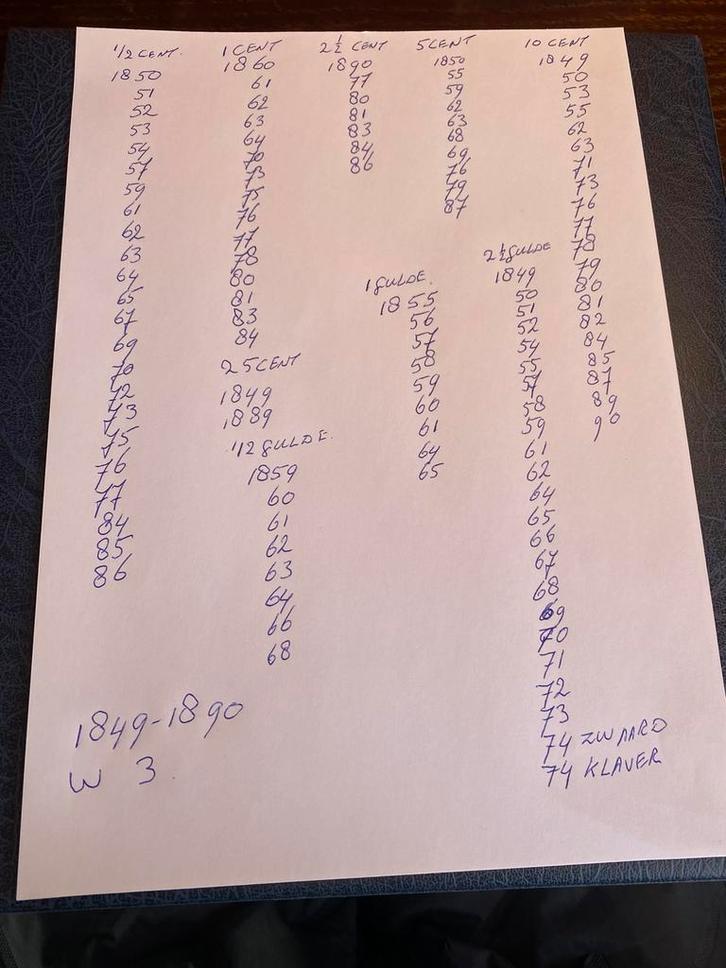 1/2 CENT.
1850
51
52
53
54
57
59
61
62
63
64
65
67
69
70
72
73
75
76
77
84
85
86
1 CENT
1860
61
62
63
64
70
73
75
76
77
78
80
81
83
84
25 CENT
1849
1889
1/2 GULDE.
1859
60
61
62
63
64
66
68
2 1/2 CENT
1890
77
80
81
83
84
86
5 CENT
1850
55
59
62
63
68
69
76
79
87
10 CENT
1849
50
53
55
62
63
71
73
76
77
78
79
80
81
82
84
85
87
89
90
1 GULDE.
1855
56
57
58
59
60
61
64
65
2 1/2 GULDE
1849
50
51
52
54
55
57
58
59
61
62
64
65
66
67
68
69
70
71
72
73
74 ZWAARD
74 KLAVER
1849-1890
W 3